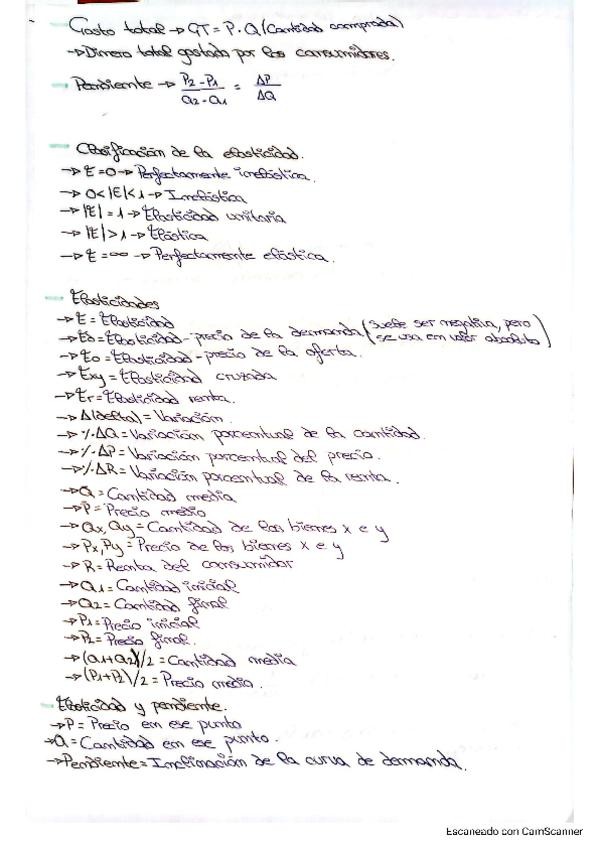 Gasto total → GT = P · Q (Cantidad comprada)
→ Dinero total gastado por los consumidores.
Pendiente → P2-P1 / Q2-Q1 = ΔP / ΔQ
Clasificación de la elasticidad.
→ E=0 → Perfectamente inelástica.
→ 0<|E|<1 → Inelástica
→ |E|=1 → Elasticidad unitaria
→ |E|>1 → Elástica
→ E=∞ → Perfectamente elástica.
Elasticidades
→ E = Elasticidad
→ ED = Elasticidad-precio de la demanda (suele ser negativa, pero se usa en valor absoluto)
→ Eo = Elasticidad-precio de la oferta.
→ Exy = Elasticidad cruzada
→ Er = Elasticidad renta.
→ Δ(delta) = Variación.
→ %ΔQ = Variación porcentual de la cantidad.
→ %ΔP = Variación porcentual del precio.
→ %ΔR = Variación porcentual de la renta.
→ Q = Cantidad media
→ P = Precio medio
→ Qx, Qy = Cantidad de los bienes x e y
→ Px, Py = Precio de los bienes x e y
→ R = Renta del consumidor
→ Q1 = Cantidad inicial
→ Q2 = Cantidad final
→ P1 = Precio inicial
→ P2 = Precio final.
→ (Q1+Q2)/2 = Cantidad media
→ (P1+P2)/2 = Precio medio.
Elasticidad y pendiente.
→ P = Precio en ese punto
→ Q = Cantidad en ese punto.
→ Pendiente = Inclinación de la curva de demanda.
Escaneado con CamScanner